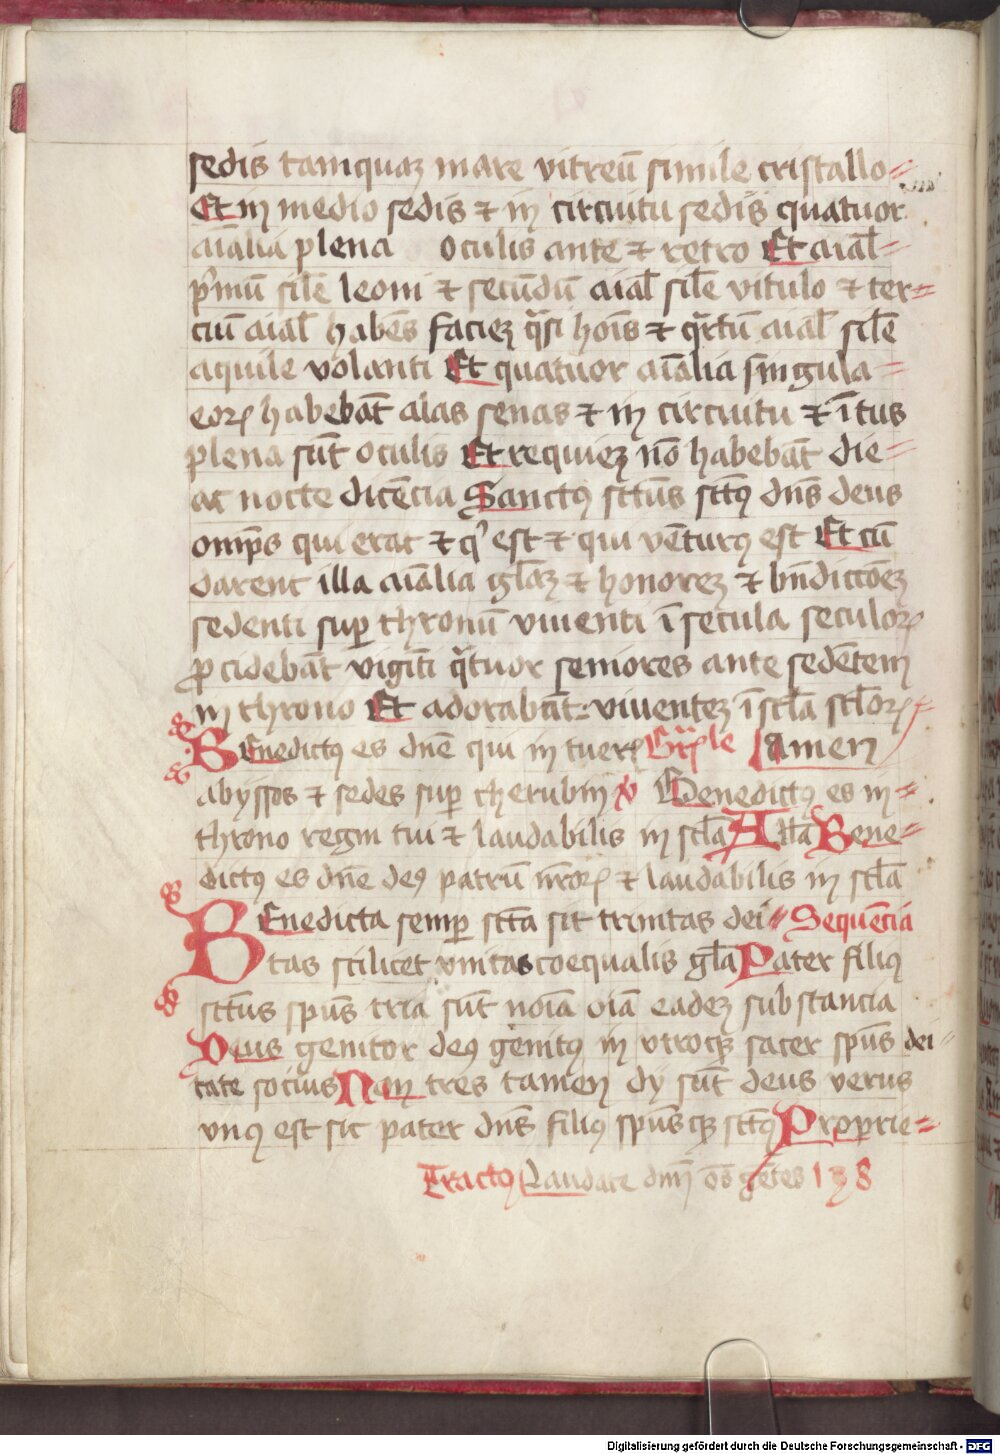 sedis tamquaꝫ mare vitreū simile cristallo
Et in medio sedis ⁊ in circuitu sedis quatuor
aīalia plena oculis ante ⁊ retro Et aīal
pͥmū sil̄e leoni ⁊ secūdū aīal sil̄e vitulo ⁊ ter
ciū aīal habēs facieꝫ q̄si hoīs ⁊ q̄rtū aīal sil̄e
aquile volanti Et quatuor aīalia singula
eoꝝ habebāt alas senas ⁊ in circuitu ⁊ ītus
plena sūt oculis Et requieꝫ nō habebāt die
ac nocte dicēcia Sanctꝯ sctūs sctꝯ dn̄s deus
omp̄s qui erat ⁊ qͥ est ⁊ qui vēturꝯ est Et cū
darent illa aīalia gl̄aꝫ ⁊ honoreꝫ ⁊ bn̄dictōeꝫ
sedenti suꝑ thronū viuenti ī secula seculoꝝ
ꝓcidebāt viginti qͣtuor seniores ante sedētem
in throno Et adorabāt viuenteꝫ ī scl̄a scl̄oꝝ
Benedictꝯ es dn̄e qui intueꝝ Gr̄le amen
abyssos ⁊ sedes suꝑ cherubin ℣ Benedictꝯ es in
throno regni tui ⁊ laudabilis in scl̄a All̄a Bene
dictꝯ es dn̄e deꝯ patrū nr̄oꝝ ⁊ laudabilis in scl̄a
Benedicta semꝑ sctā sit trinitas dei Sequēcia
tas scilicet vnitas coequalis gl̄a Pater filiꝯ
sctūs spūs tria sūt noīa oīa eadeꝫ substancia
Deus genitor deꝯ genitꝯ in vtroqꝫ sacer spūs dei
tate socius Nam tres tamen dij sūt deus verus
vnꝯ est sic pater dn̄s filiꝯ spūsqꝫ sctꝯ Proprie
Tractꝯ Laudate dn̄m oēs gētes 138
Digitalisierung gefördert durch die Deutsche Forschungsgemeinschaft - DFG